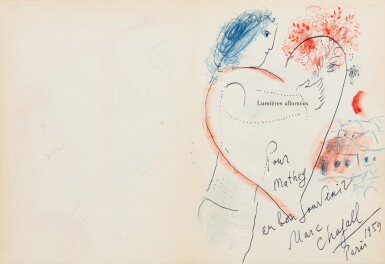 Lumières allumées
Pour
Mathey
en bon souvenir
Marc
Chagall
Paris 1959